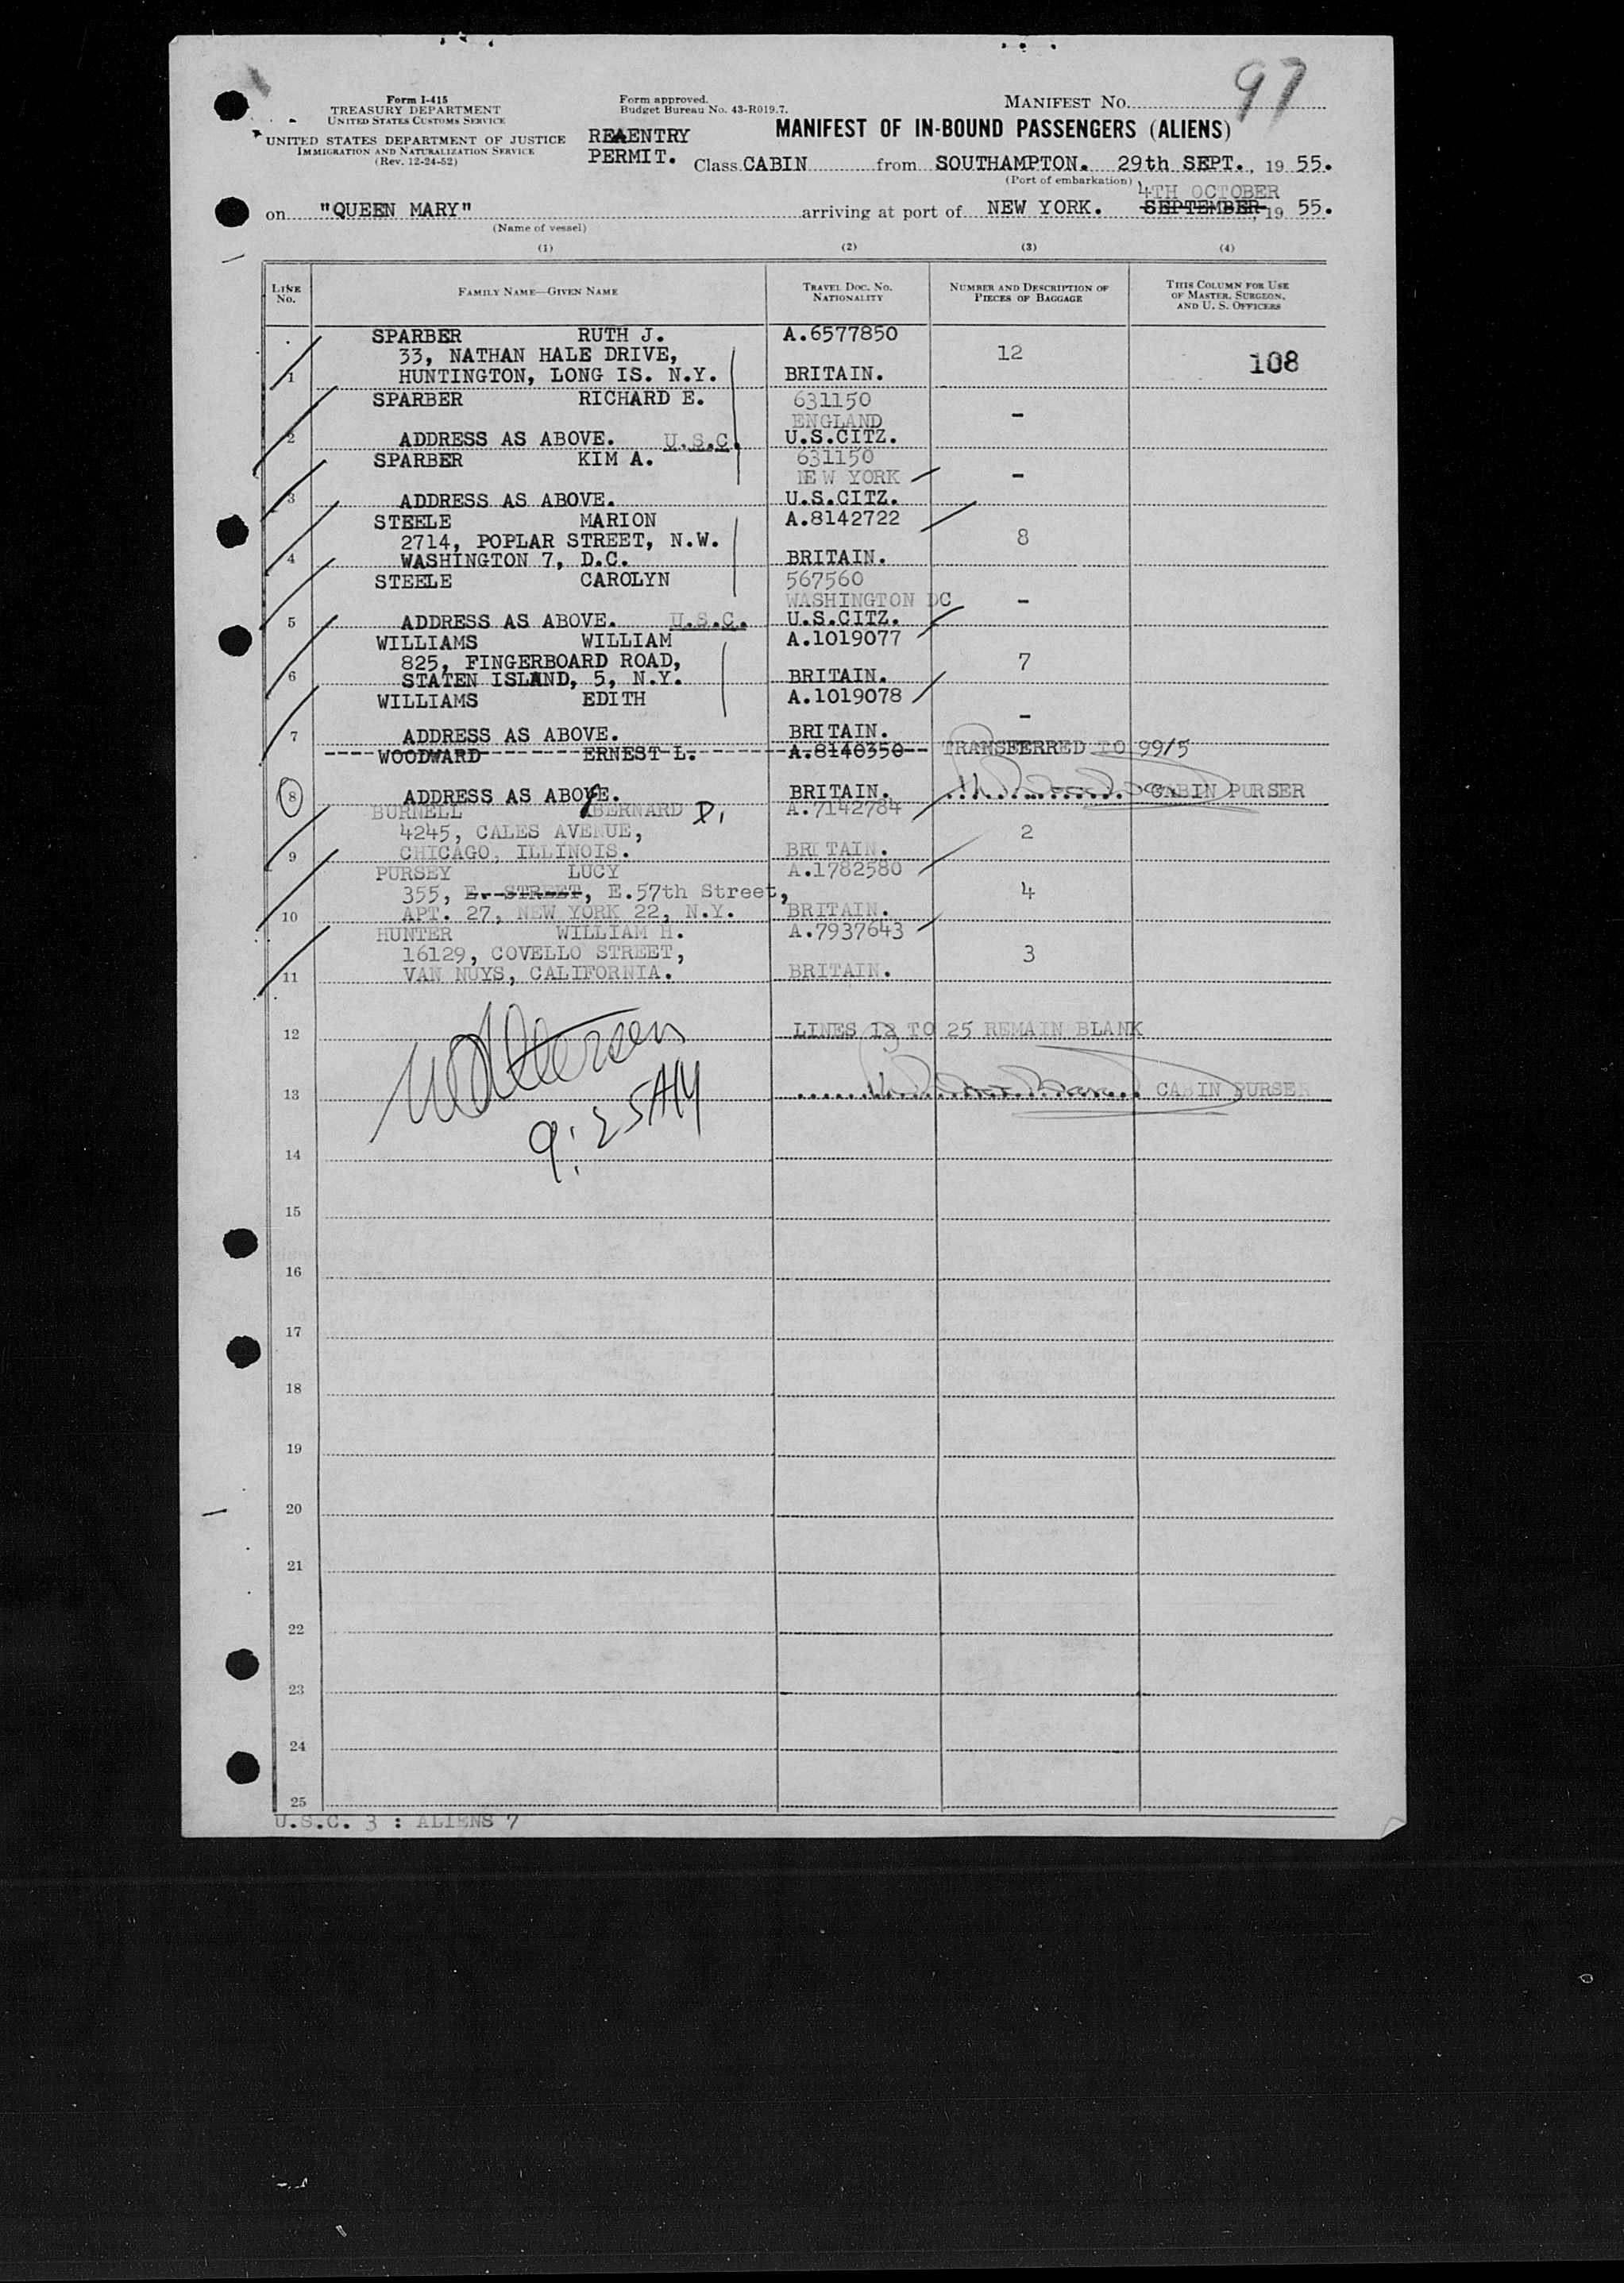 97
Form I-415
TREASURY DEPARTMENT
UNITED STATES CUSTOMS SERVICE
UNITED STATES DEPARTMENT OF JUSTICE
IMMIGRATION AND NATURALIZATION SERVICE
(Rev. 12-24-52)
Form approved.
Budget Bureau No. 43-R019.7.
MANIFEST No.
REAENTRY
PERMIT.
MANIFEST OF IN-BOUND PASSENGERS (ALIENS)
Class CABIN from SOUTHAMPTON. 29th SEPT., 19 55.
(Port of embarkation)
4TH OCTOBER
on "QUEEN MARY" arriving at port of NEW YORK. SEPTEMBER, 19 55.
(Name of vessel)
(1) (2) (3) (4)
LINE No. FAMILY NAME—GIVEN NAME TRAVEL DOC. NO. NATIONALITY NUMBER AND DESCRIPTION OF PIECES OF BAGGAGE THIS COLUMN FOR USE OF MASTER, SURGEON, AND U. S. OFFICERS
SPARBER RUTH J. A.6577850
33, NATHAN HALE DRIVE, 12 108
1 HUNTINGTON, LONG IS. N.Y. BRITAIN.
SPARBER RICHARD E. 631150
ENGLAND -
2 ADDRESS AS ABOVE. U.S.C. U.S.CITZ.
SPARBER KIM A. 631150
NEW YORK -
3 ADDRESS AS ABOVE. U.S.CITZ.
STEELE MARION A.8142722
2714, POPLAR STREET, N.W. 8
4 WASHINGTON 7, D.C. BRITAIN.
STEELE CAROLYN 567560
WASHINGTON DC -
5 ADDRESS AS ABOVE. U.S.C. U.S.CITZ.
WILLIAMS WILLIAM A.1019077
825, FINGERBOARD ROAD, 7
6 STATEN ISLAND, 5, N.Y. BRITAIN.
WILLIAMS EDITH A.1019078
-
7 ADDRESS AS ABOVE. BRITAIN.
WOODWARD ERNEST L. A.8140350 TRANSFERRED TO 99/5
8 ADDRESS AS ABOVE. BRITAIN. CABIN PURSER
BURNELL BERNARD D. A.7142784
4245, CALES AVENUE, 2
9 CHICAGO, ILLINOIS. BRITAIN.
PURSEY LUCY A.1782580
355, E. STREET, E.57th Street, 4
10 APT. 27, NEW YORK 22, N.Y. BRITAIN.
HUNTER WILLIAM H. A.7937643
16129, COVELLO STREET, 3
11 VAN NUYS, CALIFORNIA. BRITAIN.
12 LINES 12 TO 25 REMAIN BLANK
13 CABIN PURSER
9:25AM
14
15
16
17
18
19
20
21
22
23
24
25
U.S.C. 3 : ALIENS 7